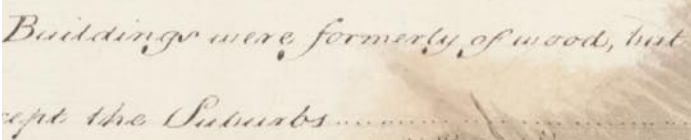 Buildings were formerly of wood, but
cept the Suburbs